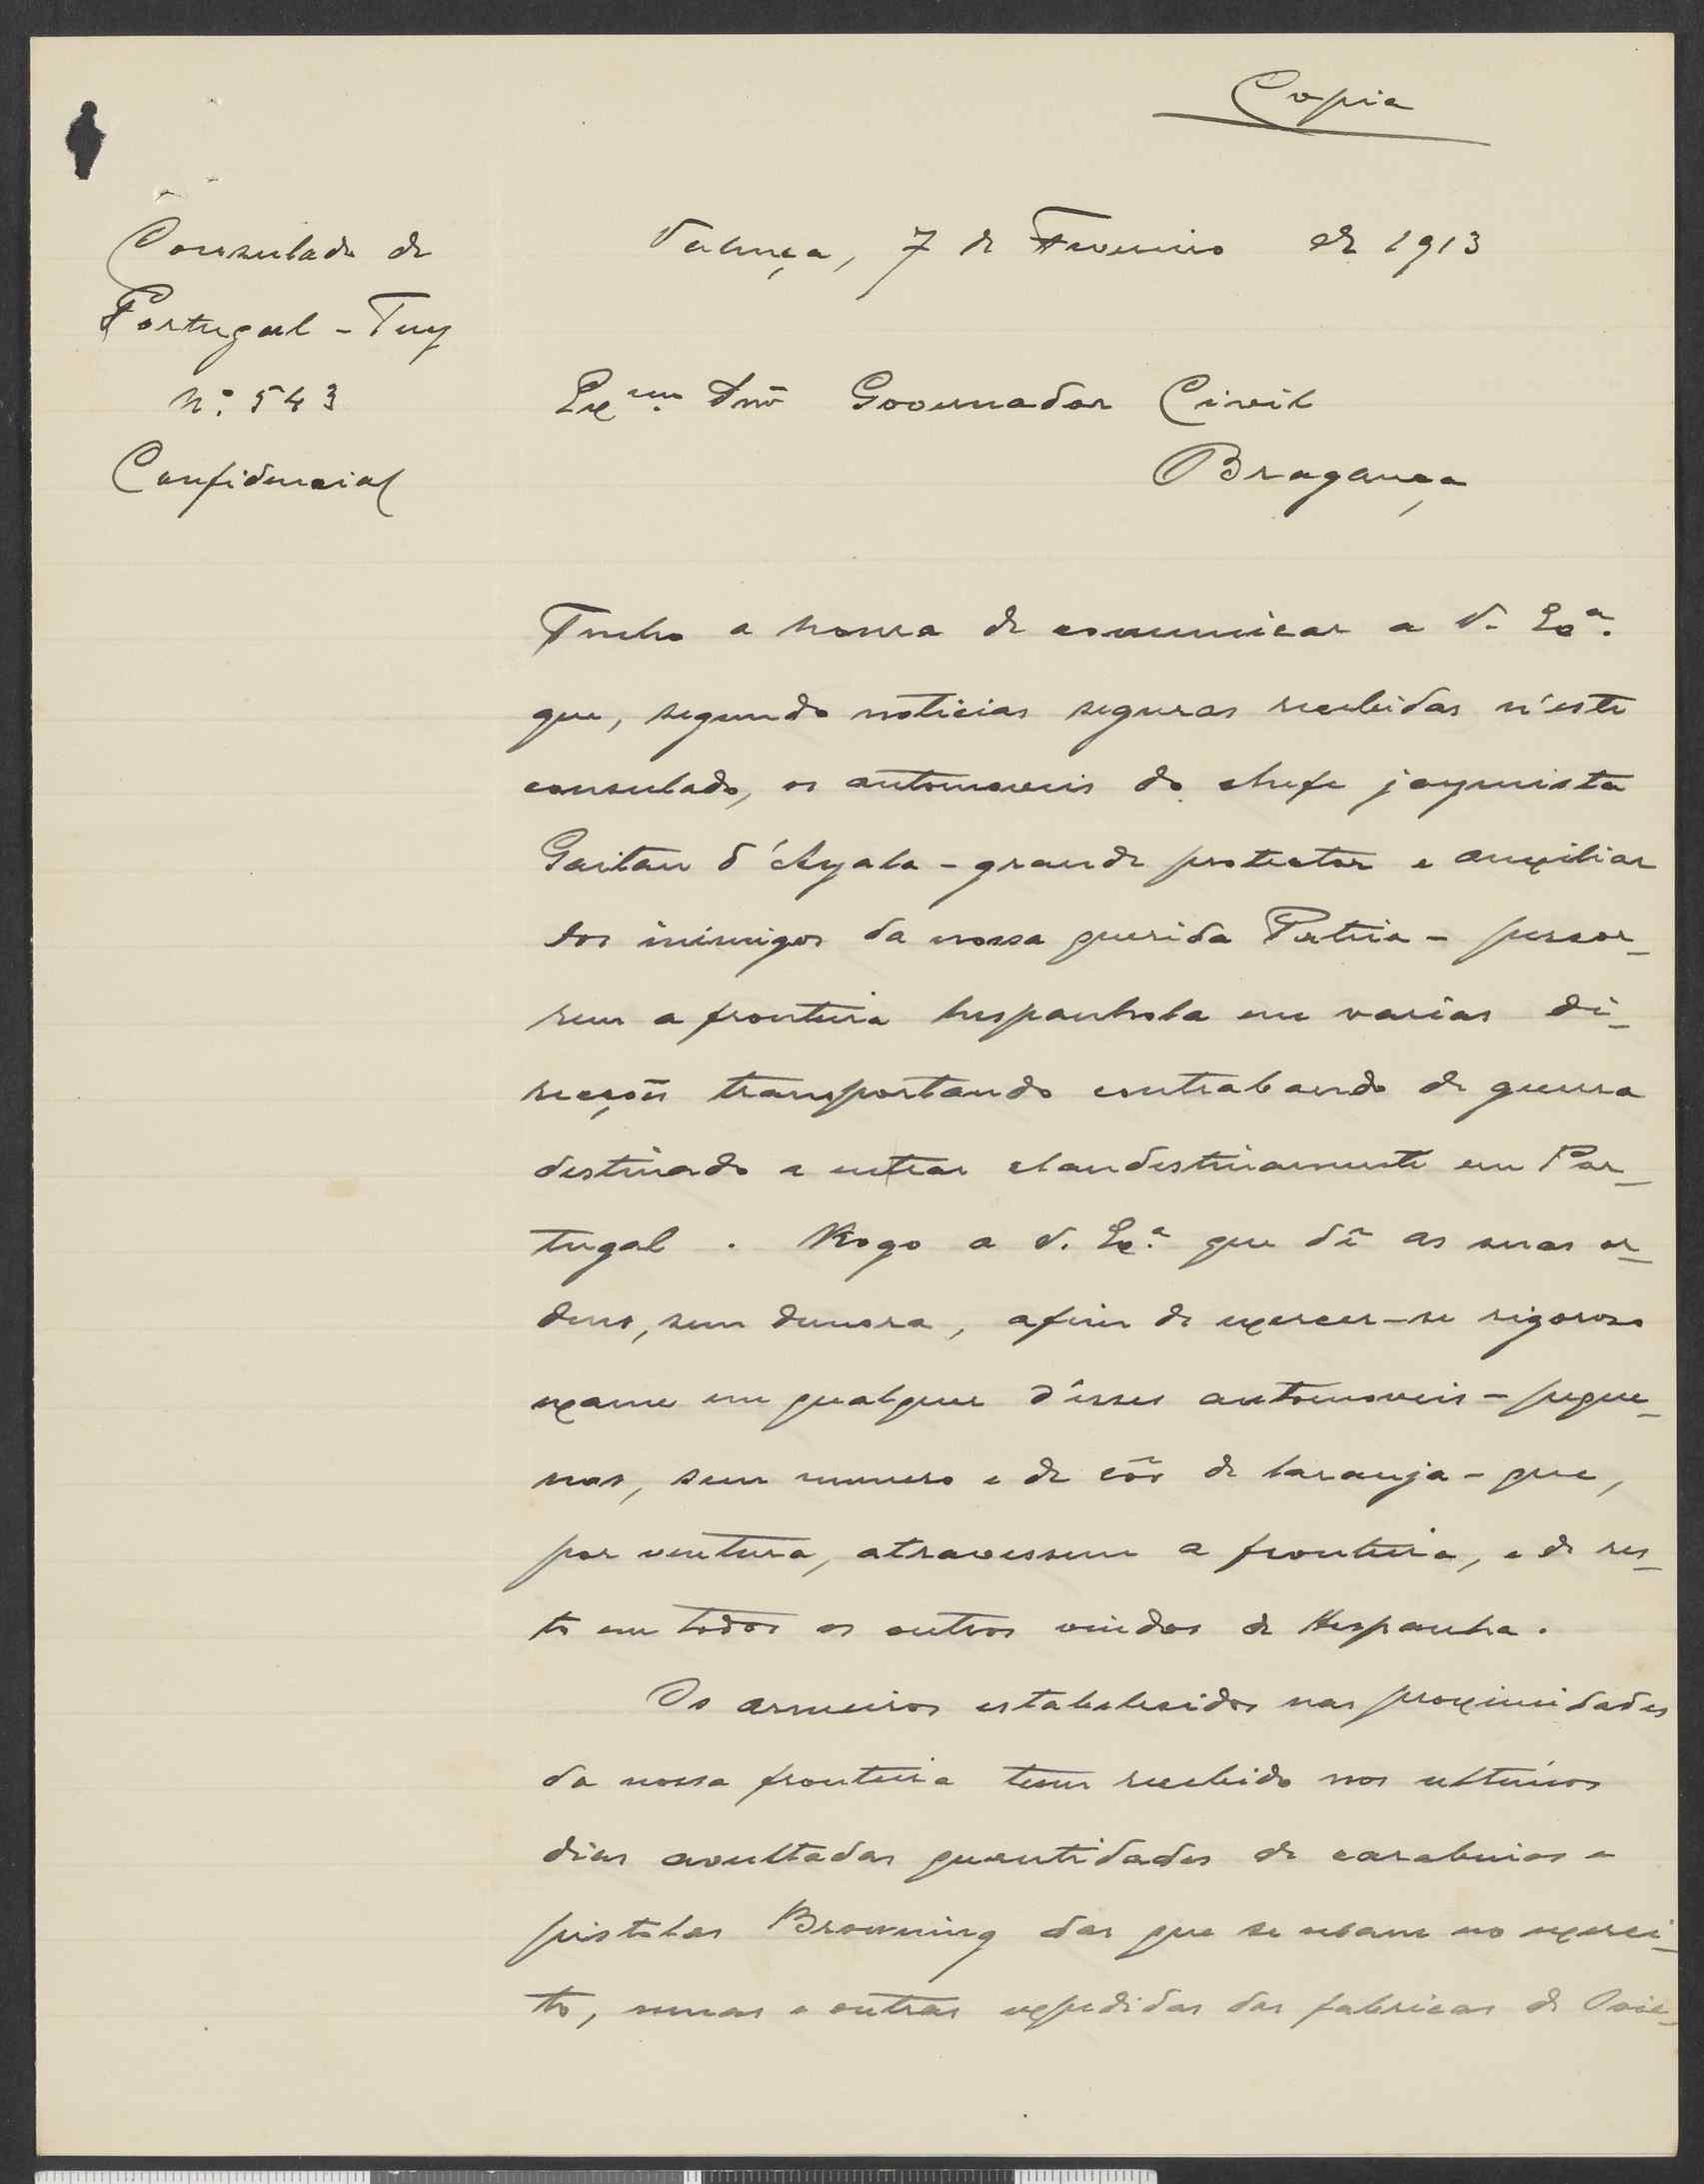 Copia
Consulado de
Portugal - Tuy
Nº 543
Confidencial
Valença, 7 de Fevereiro de 1913
Exmo. Snr Governador Civil
Bragança
Tenho a honra de comunicar a V. Exª.
que, segundo noticias seguras recebidas n'este
consulado, os automoveis do chefe jaymista
Gaitan d'Ayala - grande protector e auxiliar
dos inimigos da nossa querida Patria - percor-
rem a fronteira hespanhola em varias di-
recções transportando contrabando de guerra
destinado a entrar clandestinamente em Por-
tugal. Rogo a V. Exª. que dê as suas or-
dens, sem demora, afim de exercer-se rigoroso
exame em qualquer d'esses automoveis - peque-
nos, sem numero e de côr de laranja - que,
por ventura, atravessem a fronteira, e de res-
to em todos os outros vindos de Hespanha.
Os armeiros estabelecidos nas proximidades
da nossa fronteira teem recebido nos ultimos
dias avultadas quantidades de carabinas e
pistolas Browning das que se usam no exerci-
to, umas e outras expedidas das fabricas de Ovie-